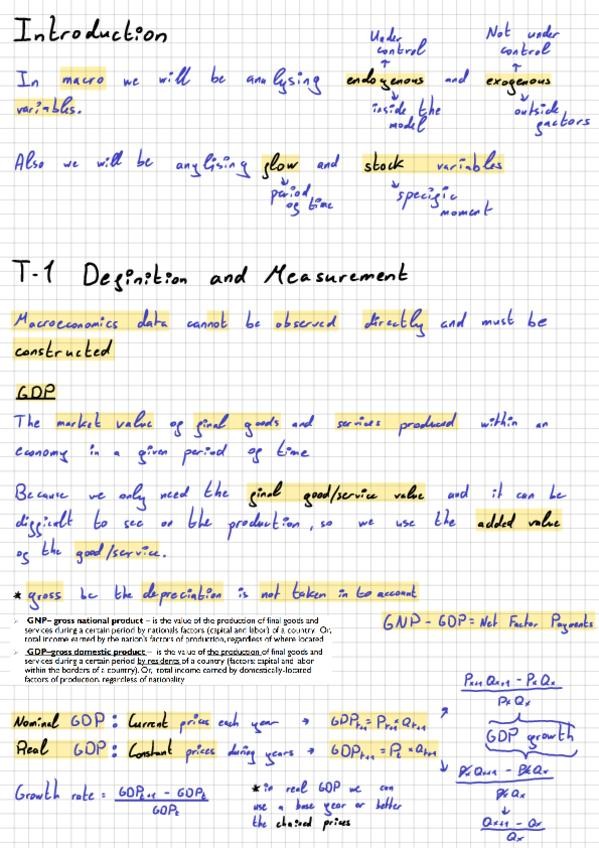 Introduction
Under control
Not under control
In macro we will be analysing endogenous and exogenous
variables.
inside the model
outside factors
Also we will be anylising flow and stock variables
period of time
specific moment
T-1 Definition and Measurement
Macroeconomics data cannot be observed directly and must be
constructed
GDP
The market value of final goods and services produced within an
economy in a given period of time
Because we only need the final good/service value and it can be
difficult to see on the production, so we use the added value
of the good/service.
* gross bc the depreciation is not taken in to account
GNP – gross national product – is the value of the production of final goods and
services during a certain period by nationals factors (capital and labor) of a country. Or,
total income earned by the nation's factors of production, regardless of where located
GNP - GDP = Net Factor Payments
GDP–gross domestic product – is the value of the production of final goods and
services during a certain period by residents of a country (factors: capital and labor
within the borders of a country). Or, total income earned by domestically-located
factors of production, regardless of nationality
Nominal GDP : Current prices each year → GDPt+1 = Pt+1 × Qt+1
Real GDP : Constant prices during years → GDPt+1 = Pt × Qt+1
Px+1 Qx+1 - Px Qx
Px Qx
GDP growth
Px Qx+1 - Px Qx
Px Qx
Qx+1 - Qx
Qx
Growth rate = GDPt+1 - GDPt
GDPt
* in real GDP we can
use a base year or better
the chained prices